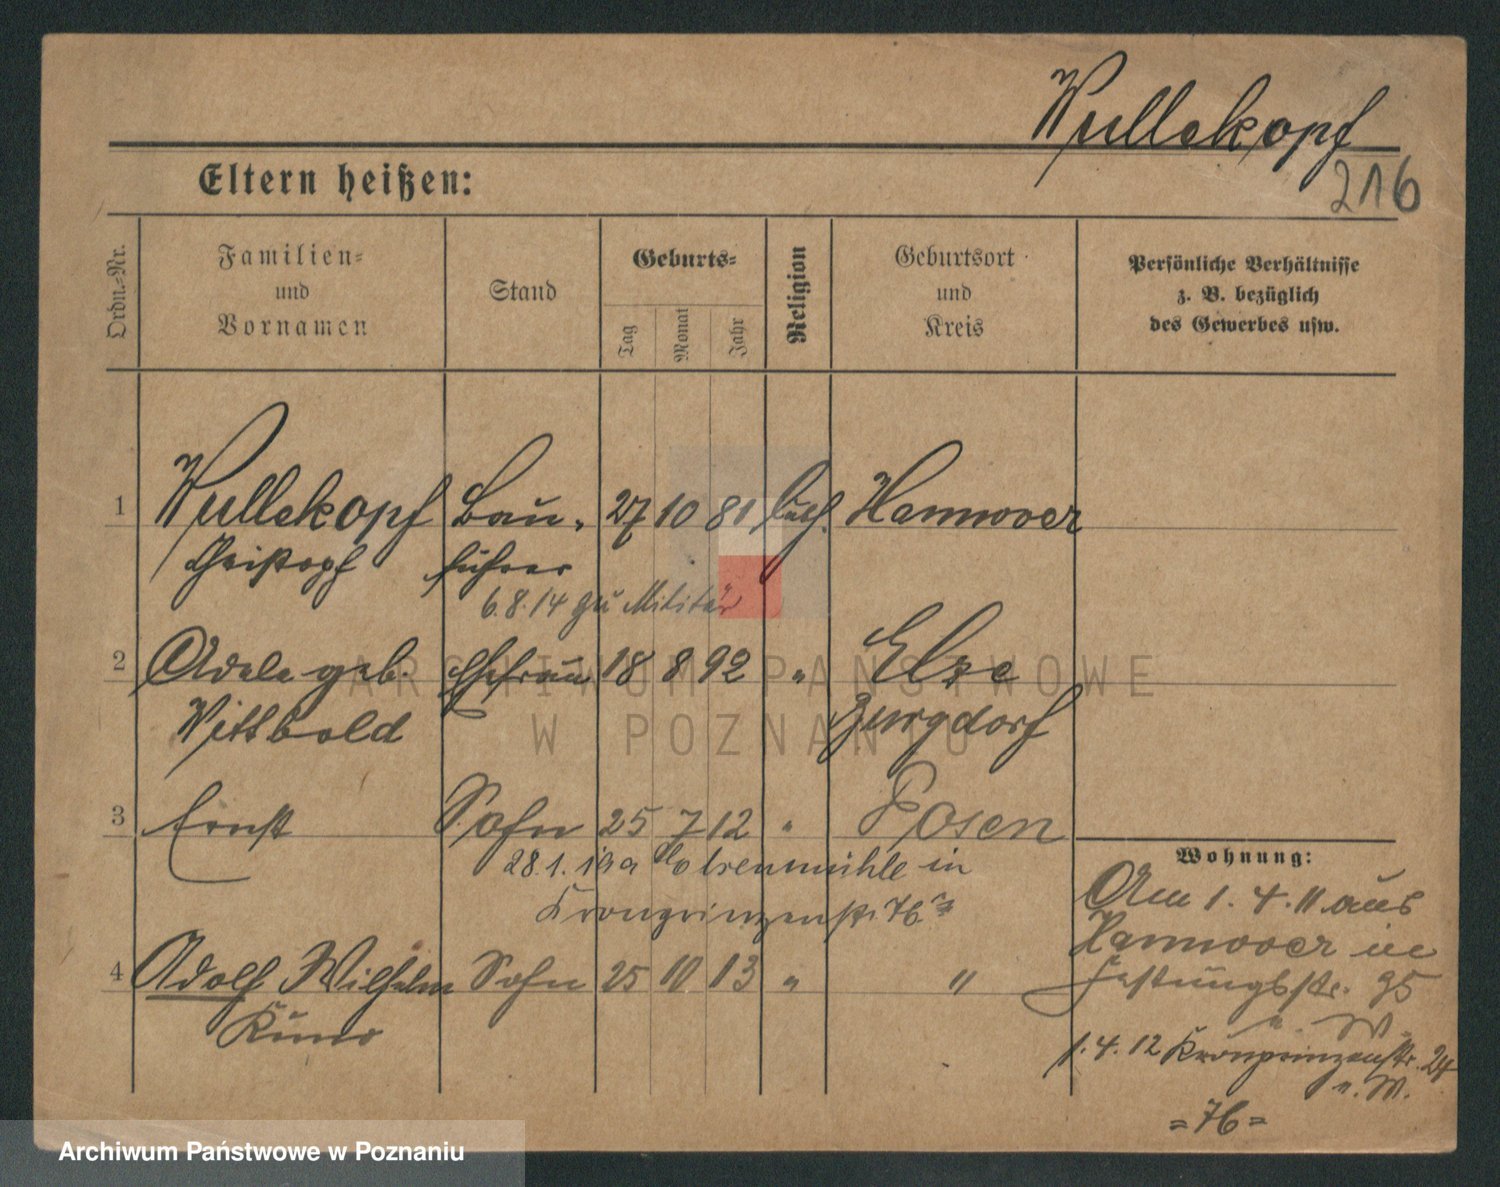 Wullekopf
216
Eltern heißen:
Ordn.-Nr.
Familien-
und
Vornamen
Stand
Geburts-
Tag
Monat
Jahr
Religion
Geburtsort
und
Kreis
Persönliche Verhältnisse
z. B. bezüglich
des Gewerbes usw.
1 Wullekopf Bau- 27 10 81 luth. Hannover
Christoph führer
6.8.14 zu Militär
2 Adele geb. Ehefrau 18 8 92 " Elze
Wittbold Burgdorf
3 Ernst Sohn 25 7 12 " Posen
28.1. in
Kronprinzenstr. 76
4 Adolf Wilhelm Sohn 25 10 13 " "
Kuno
Wohnung:
Am 1.4.11 aus
Hannover in
Festungsstr. 95
n. W.
1.4.12 Kronprinzenstr. 24
n. W.
=76=
ARCHIWUM PAŃSTWOWE
W POZNANIU
Archiwum Państwowe w Poznaniu